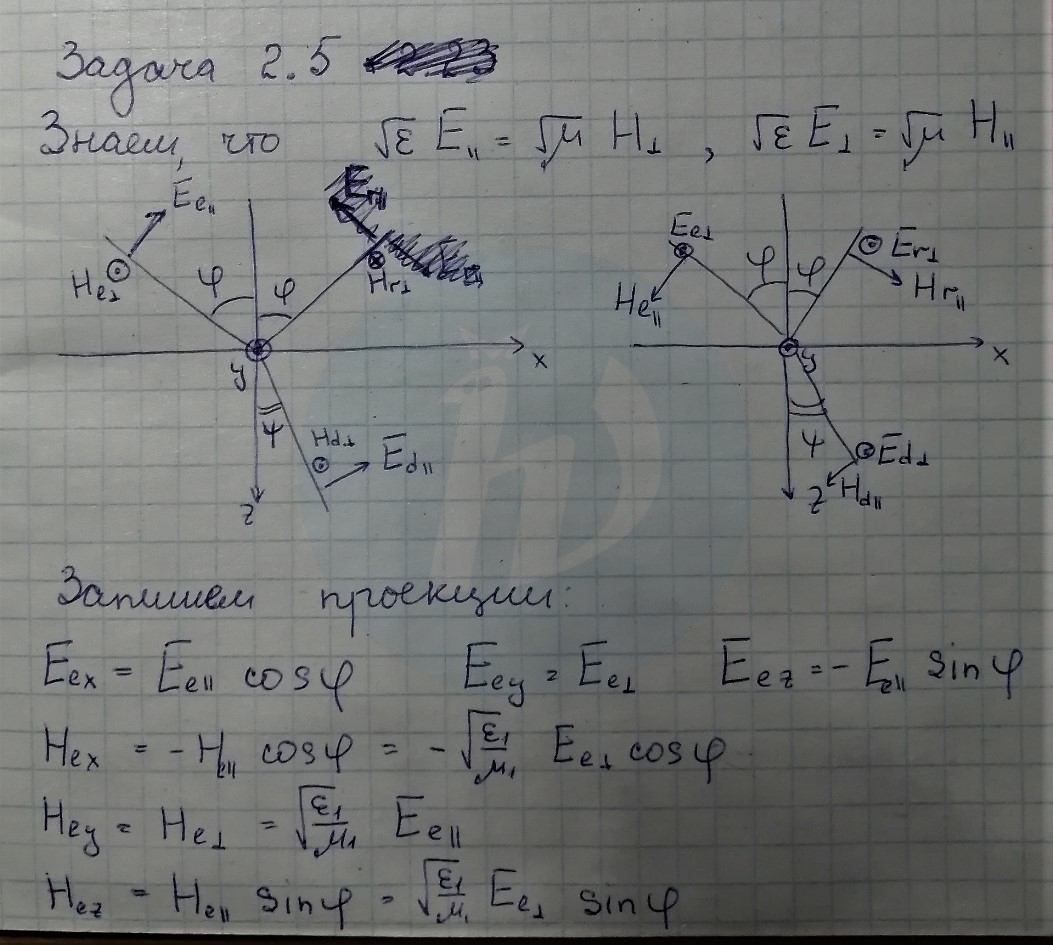 Задача 2.5
Знаем, что √ε E∥ = √μ H⊥ , √ε E⊥ = √μ H∥
Ee∥
He⊥
φ
φ
Hr⊥
x
y
ψ
Hd⊥
Ed∥
z
Ee⊥
He∥
φ
φ
Er⊥
Hr∥
x
y
ψ
Ed⊥
z
Hd∥
Запишем проекции:
Eex = Ee∥ cosφ Eey = Ee⊥ Eez = - Ee∥ sinφ
Hex = - He∥ cosφ = - √(ε1/μ1) Ee⊥ cosφ
Hey = He⊥ = √(ε1/μ1) Ee∥
Hez = He∥ sinφ = √(ε1/μ1) Ee⊥ sinφ